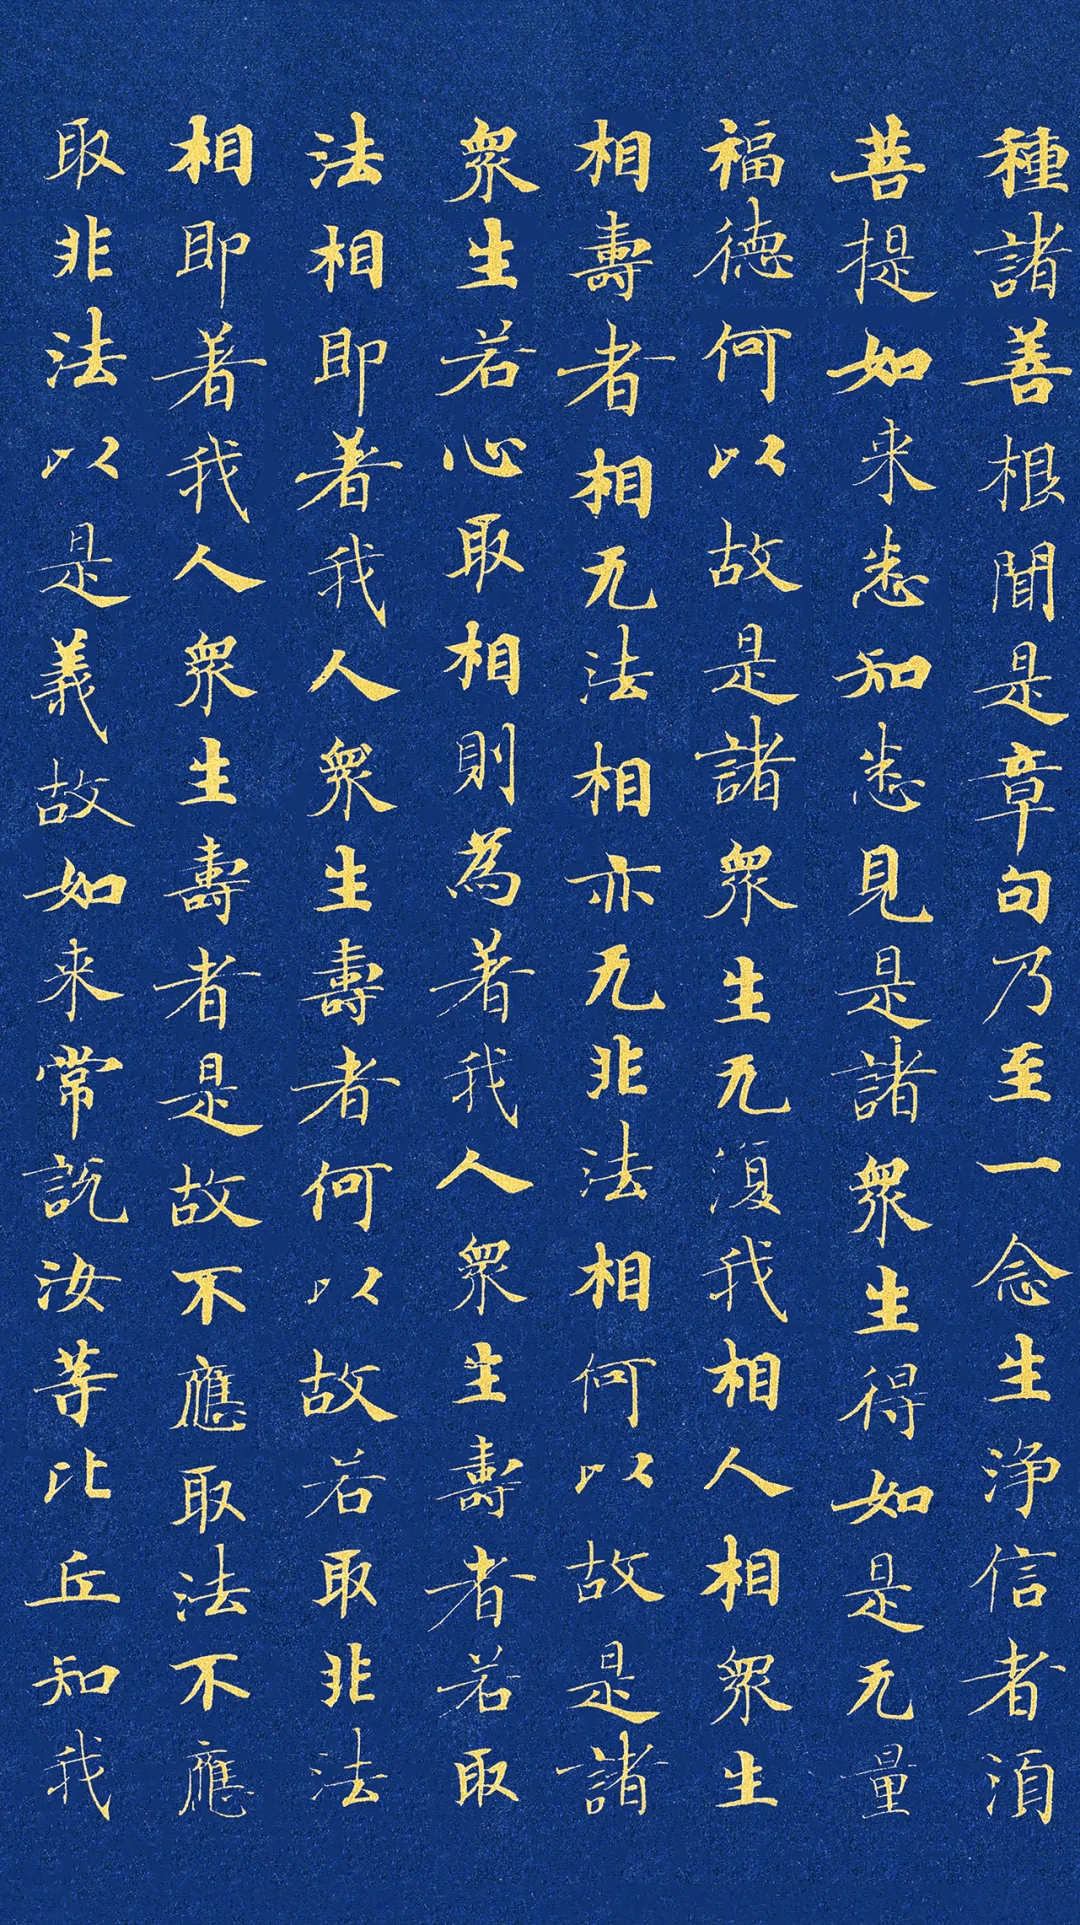 種諸善根聞是章句乃至一念生淨信者湏
菩提如来悉知悉見是諸衆生得如是无量
福德何以故是諸衆生无復我相人相衆生
相壽者相无法相亦无非法相何以故是諸
衆生若心取相則為著我人衆生壽者若取
法相即著我人衆生壽者何以故若取非法
相即著我人衆生壽者是故不應取法不應
取非法以是義故如来常說汝等比丘知我